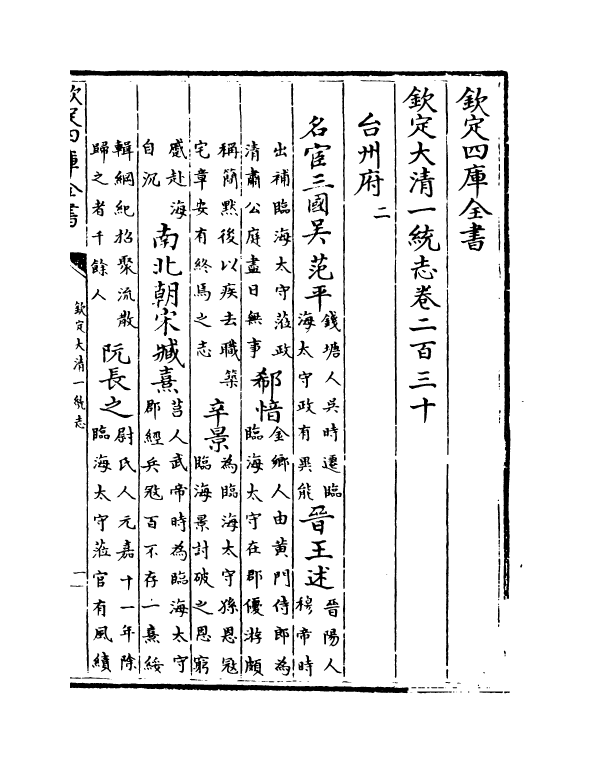 欽定四庫全書
欽定大清一統志卷二百三十
台州府二
名宦三國吳范平錢塘人吳時遷臨海太守政有異能晉王述晉陽人穆帝時
出補臨海太守蒞政清肅公庭盡日無事郗愔金鄉人由黃門侍郎為臨海太守在郡優游頗
稱簡黙後以疾去職築宅章安有終焉之志辛景為臨海太守孫恩冦臨海景討破之恩窮
慼赴海自沉南北朝宋臧熹莒人武帝時為臨海太守郡經兵冦百不存一熹綏
輯綱紀招聚流散歸之者千餘人阮長之尉氏人元嘉十一年除臨海太守蒞官有風績
欽定四庫全書
欽定大清一統志
一